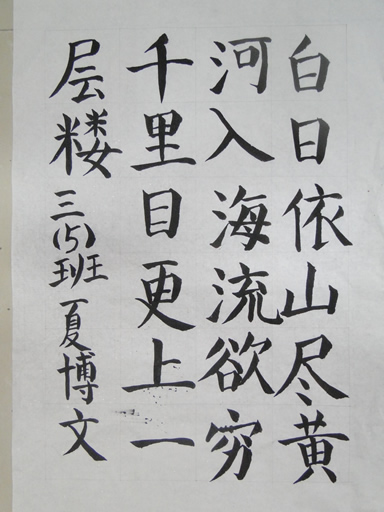 白日依山尽黄
河入海流欲穷
千里目更上一
层楼三(5)班夏博文